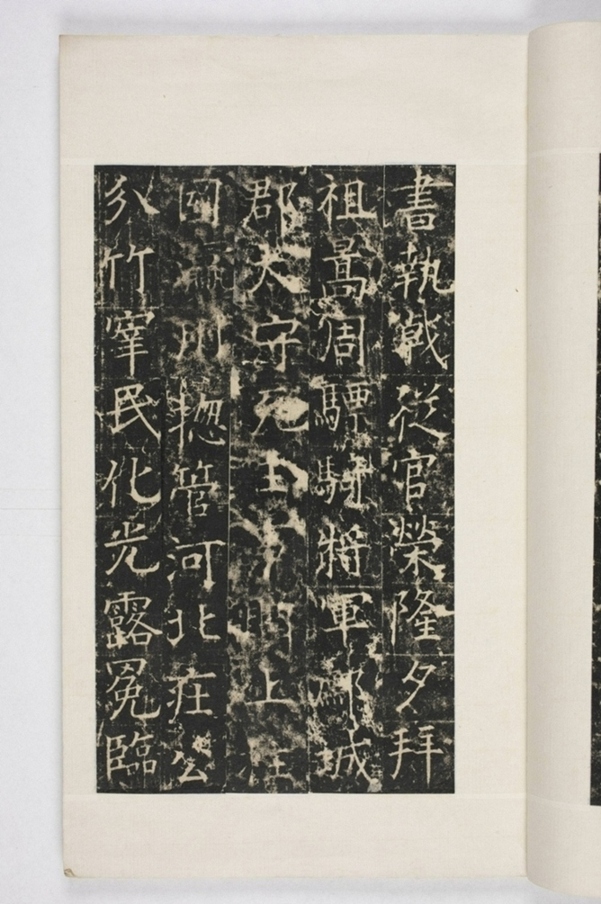 書執戟從官榮隆夕拜
祖暠周驃騎將軍城
郡太守上柱
國州揔管河北莊公
分竹宰民化光露冕臨